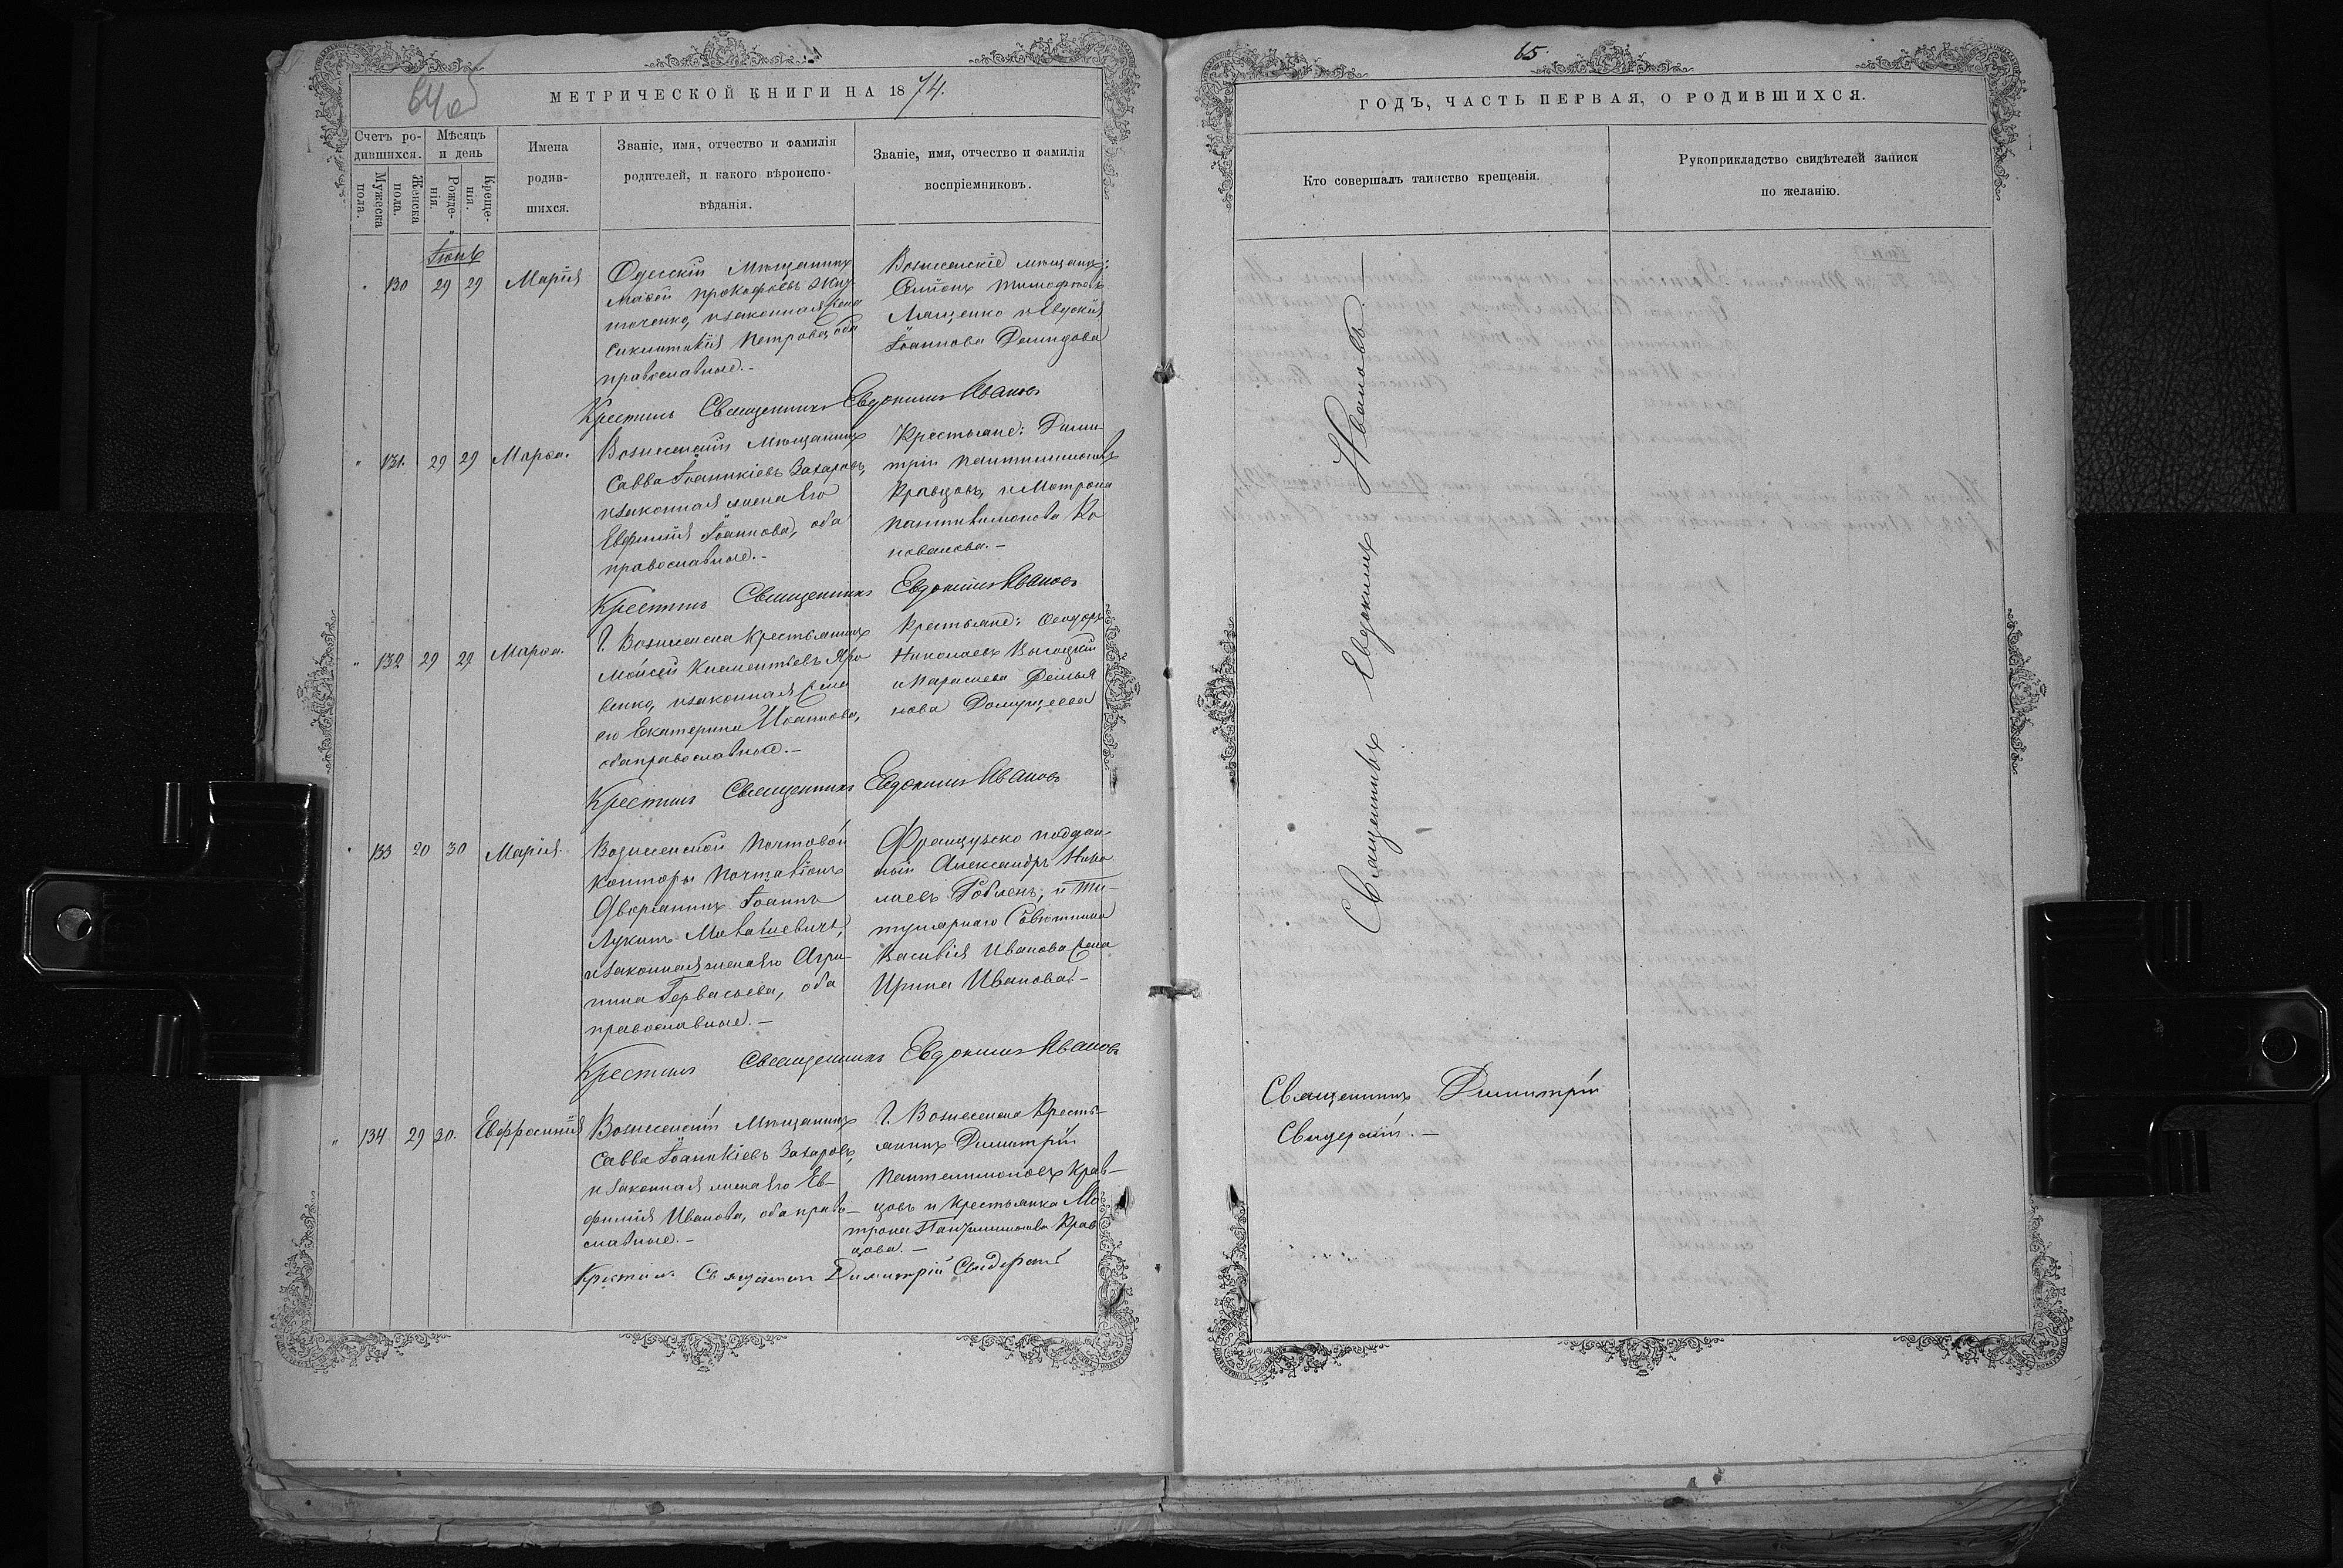 64об
МЕТРИЧЕСКОЙ КНИГИ НА 1874.
Счетъ ро-
дившихся.
Мужеска пола.
Женска пола.
Мѣсяцъ
и день
Рожде-
нія.
Креще-
нія.
Имена
родив-
шихся.
Званіе, имя, отчество и фамилія
родителей, и какого вѣроиспо-
вѣданія.
Званіе, имя, отчество и фамилія
воспріемниковъ.
Іюнь
" 130 29 29 Марія
Одесскій Мѣщанинъ
Прокофьевъ
и законная жена
Петрова, оба
православные.-
Вознесенскіе мѣщане:
Семіонъ Тимофеевъ
Лященко и Евдокія
Іоаннова Демидова
Крестилъ Священникъ Евдокимъ Ивановъ
" 131. 29 29 Марѳа.
Вознесенскій Мѣщанинъ
Савва Іоанникіевъ Захаровъ,
и законная жена его
Евфимія Іоаннова, оба
православные.-
Крестьяне: Дими-
трій Пантелимоновъ
Кравцовъ, и Мотрона
Пантелимонова Ко
новалова.-
Крестилъ Священникъ Евдокимъ Ивановъ
" 132 29 29 Марѳа.
Г. Вознесенска Крестьянинъ
Моисей Климентьевъ Яро
венко, и законная жена
его Екатерина Иоаннова,
оба православные.-
Крестьяне: Ѳеодоръ
Николаевъ Высоцкій
и Параскева Демья
нова
Крестилъ Священникъ Евдокимъ Ивановъ
" 133 20 30 Марія.
Вознесенской Почтовой
Конторы Почталіонъ
Дворянинъ Іоаннъ
Лукинъ
и законная жена его Агри-
пина Гервасьева, оба
православные.-
Французско поддан-
ный Александръ Нико
лаевъ и Ти-
тулярнаго Совѣтника
Василія Иванова жена
Ирина Иванова.-
Крестилъ Священникъ Евдокимъ Ивановъ
" 134 29 30. Евфросинія
Вознесенскій Мѣщанинъ
Савва Іоанникіевъ Захаровъ,
и законная жена его Ев-
фимія Иванова, оба право-
славные.-
Г. Вознесенска Кресть-
янинъ Димитрій
Пантелимоновъ Крав-
цовъ и крестьянка Мо
трона Пантелимонова Крав
цова.-
Крестилъ Священникъ Димитрій Свидерскій
65.
ГОДЪ, ЧАСТЬ ПЕРВАЯ, О РОДИВШИХСЯ.
Кто совершалъ таинство крещенія.
Рукоприкладство свидѣтелей записи
по желанію.
Священникъ Евдокимъ Ивановъ.
Священникъ Димитрій
Свидерскій.-